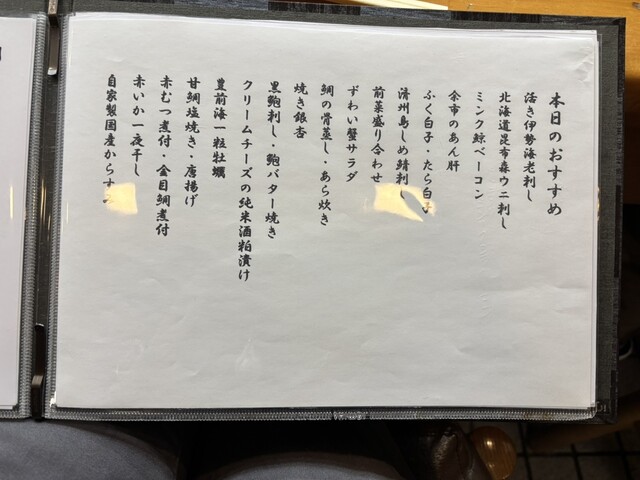 本日のおすすめ
活き伊勢海老刺し
北海道昆布森ウニ刺し
ミンク鯨ベーコン
余市のあん肝
ふく白子・たら白子
済州島しめ鯖刺し
前菜盛り合わせ
ずわい蟹サラダ
鯛の骨蒸し・あら炊き
焼き銀杏
黒鮑刺し・鮑バター焼き
クリームチーズの純米酒粕漬け
豊前海一粒牡蠣
甘鯛塩焼き・唐揚げ
赤むつ煮付・金目鯛煮付
赤いか一夜干し
自家製国産からすみ